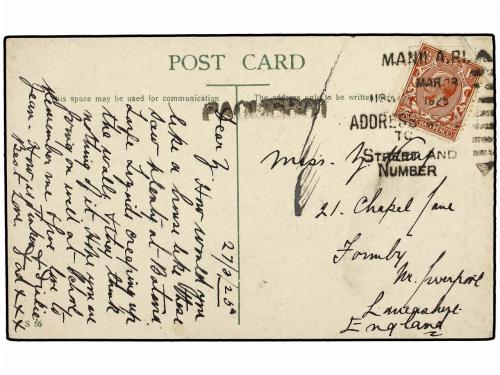 POST CARD
This space may be used for communication
The address only to be written
PAQUEBOT
MANILA, P.I.
MAR
1925
ADDRESS
TO
STREET AND
NUMBER
27/3/25
Dear
How would you
like a house like these
saw plenty at Batavia
large lizards creeping up
the walls & they think
nothing of it Hope you are
going on well at school
Remember me & for love to
Jean. How is
Best Love Dad xxx
Miss
21. Chapel Lane
Formby
Nr. Liverpool
Lancashire
England